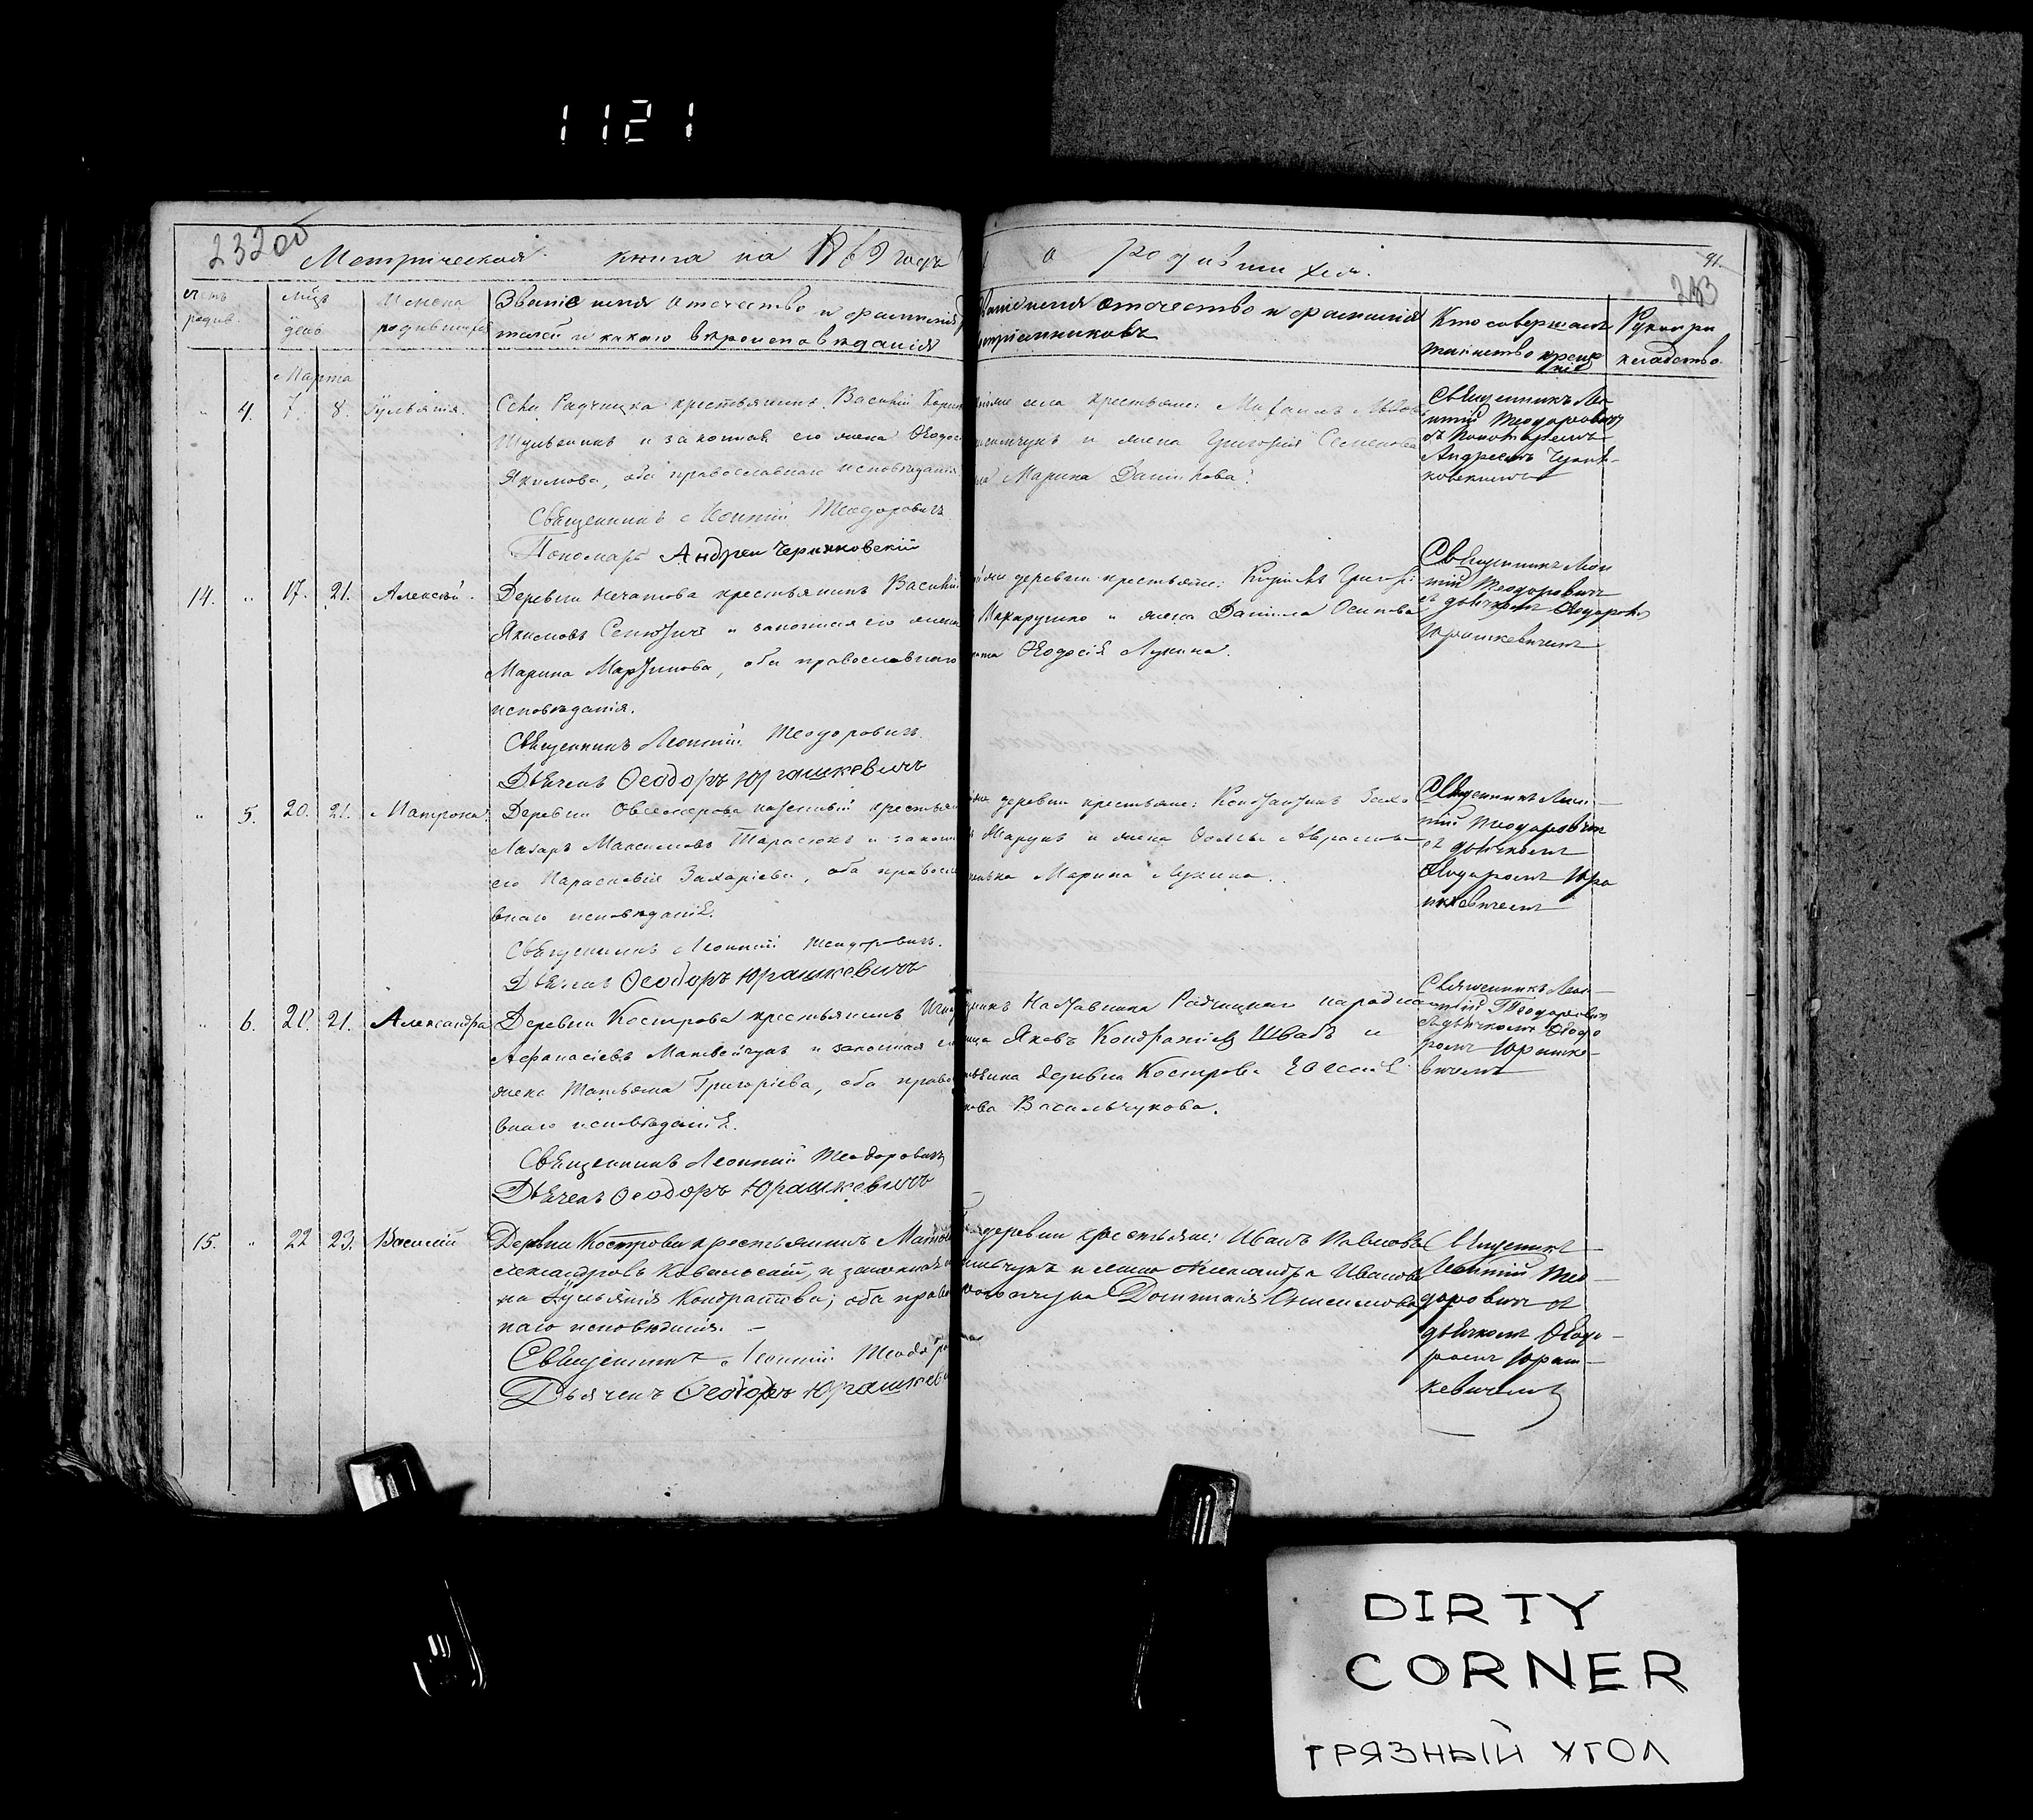 1121
232об
Метрическая книга на 1869 годъ
о родившихся.
91.
233
Счетъ родив.
Мцъ день
Имена родившихся
Званіе имя отечество и фамилія
телей и какого вѣроисповѣданія
званіе имя отечество и фамилія
воспріемниковъ
Кто совершалъ
таинство креще
нія
Рукопри
кладство.
Марта
" 4. 7. 8. Іуліанія.
Села Радчицка крестьянинъ Василій
и законная его жена Ѳеодос
Якимова, оба православнаго исповѣданія
Священникъ Леонтій Теодоровичъ
Пономарь Андрей Черняковскій
села крестьяне: Михаилъ
и жена Григорія Семенова
Марина Данилова.
Священникъ Лео
нтій Теодоровичъ
съ Пономаремъ
Андреемъ Черня-
ковскимъ
14. " 17. 21. Алексѣй.
Деревни Нечатова крестьянинъ Василій
Якимовъ и законная его жена
Марина Мартинова, оба православнаго
исповѣданія.
Священникъ Леонтій Теодоровичъ.
Дьячекъ Ѳеодоръ Юрашкевичъ
деревни крестьяне:
Макарушко и жена Данила Осипова
Ѳеодосія Лукина.
Священникъ Леон
тій Теодоровичъ
съ дьячкомъ Ѳеодоромъ
Юрашкевичемъ
" 5. 20. 21. Матрона.
Деревни крестьян
Лазарь Максимовъ Тарасюкъ и закон
его Параскевія Захаріева, оба правосла
внаго исповѣданія.
Священникъ Леонтій Теодоровичъ.
Дьячекъ Ѳеодоръ Юрашкевичъ
деревни крестьяне: Константинъ
Марукъ и жена Ѳомы Аврамова
Марина Лукина.
Священникъ Леон-
тій Теодоровичъ
съ дьячкомъ
Ѳеодоромъ Юра
шкевичемъ
" 6. 21. 21. Александра
Деревни Кострова крестьянинъ
Афанасіевъ Матвейчукъ и законная ег
жена Татьяна Григоріева, оба право
внаго исповѣданія.
Священникъ Леонтій Теодоровичъ
Дьячекъ Ѳеодоръ Юрашкевичъ
Наставника Радчицкаго народна
Яковъ Кондратіевъ Швабъ и
деревни Кострова
Васильчукова.
Священникъ Леон-
тій Теодоровичъ
съ дьячкомъ Ѳеодо
ромъ Юрашке-
вичемъ
15. " 22 23. Василій
Деревни Кострова крестьянинъ
Александровъ Ковальскій, и законная
на Іуліанія Кондратіева; оба право
наго исповѣданія. -
Священникъ Леонтій Теодоро
Дьячекъ Ѳеодоръ Юрашкеви
деревни крестьяне: Иванъ Павловъ
и жена Александра Иванова
Домникія Онисимова
Священникъ
Леонтій Тео-
доровичъ съ
дьячкомъ Ѳеодо-
ромъ Юраш-
кевичемъ
DIRTY
CORNER
ГРЯЗНЫЙ УГОЛ